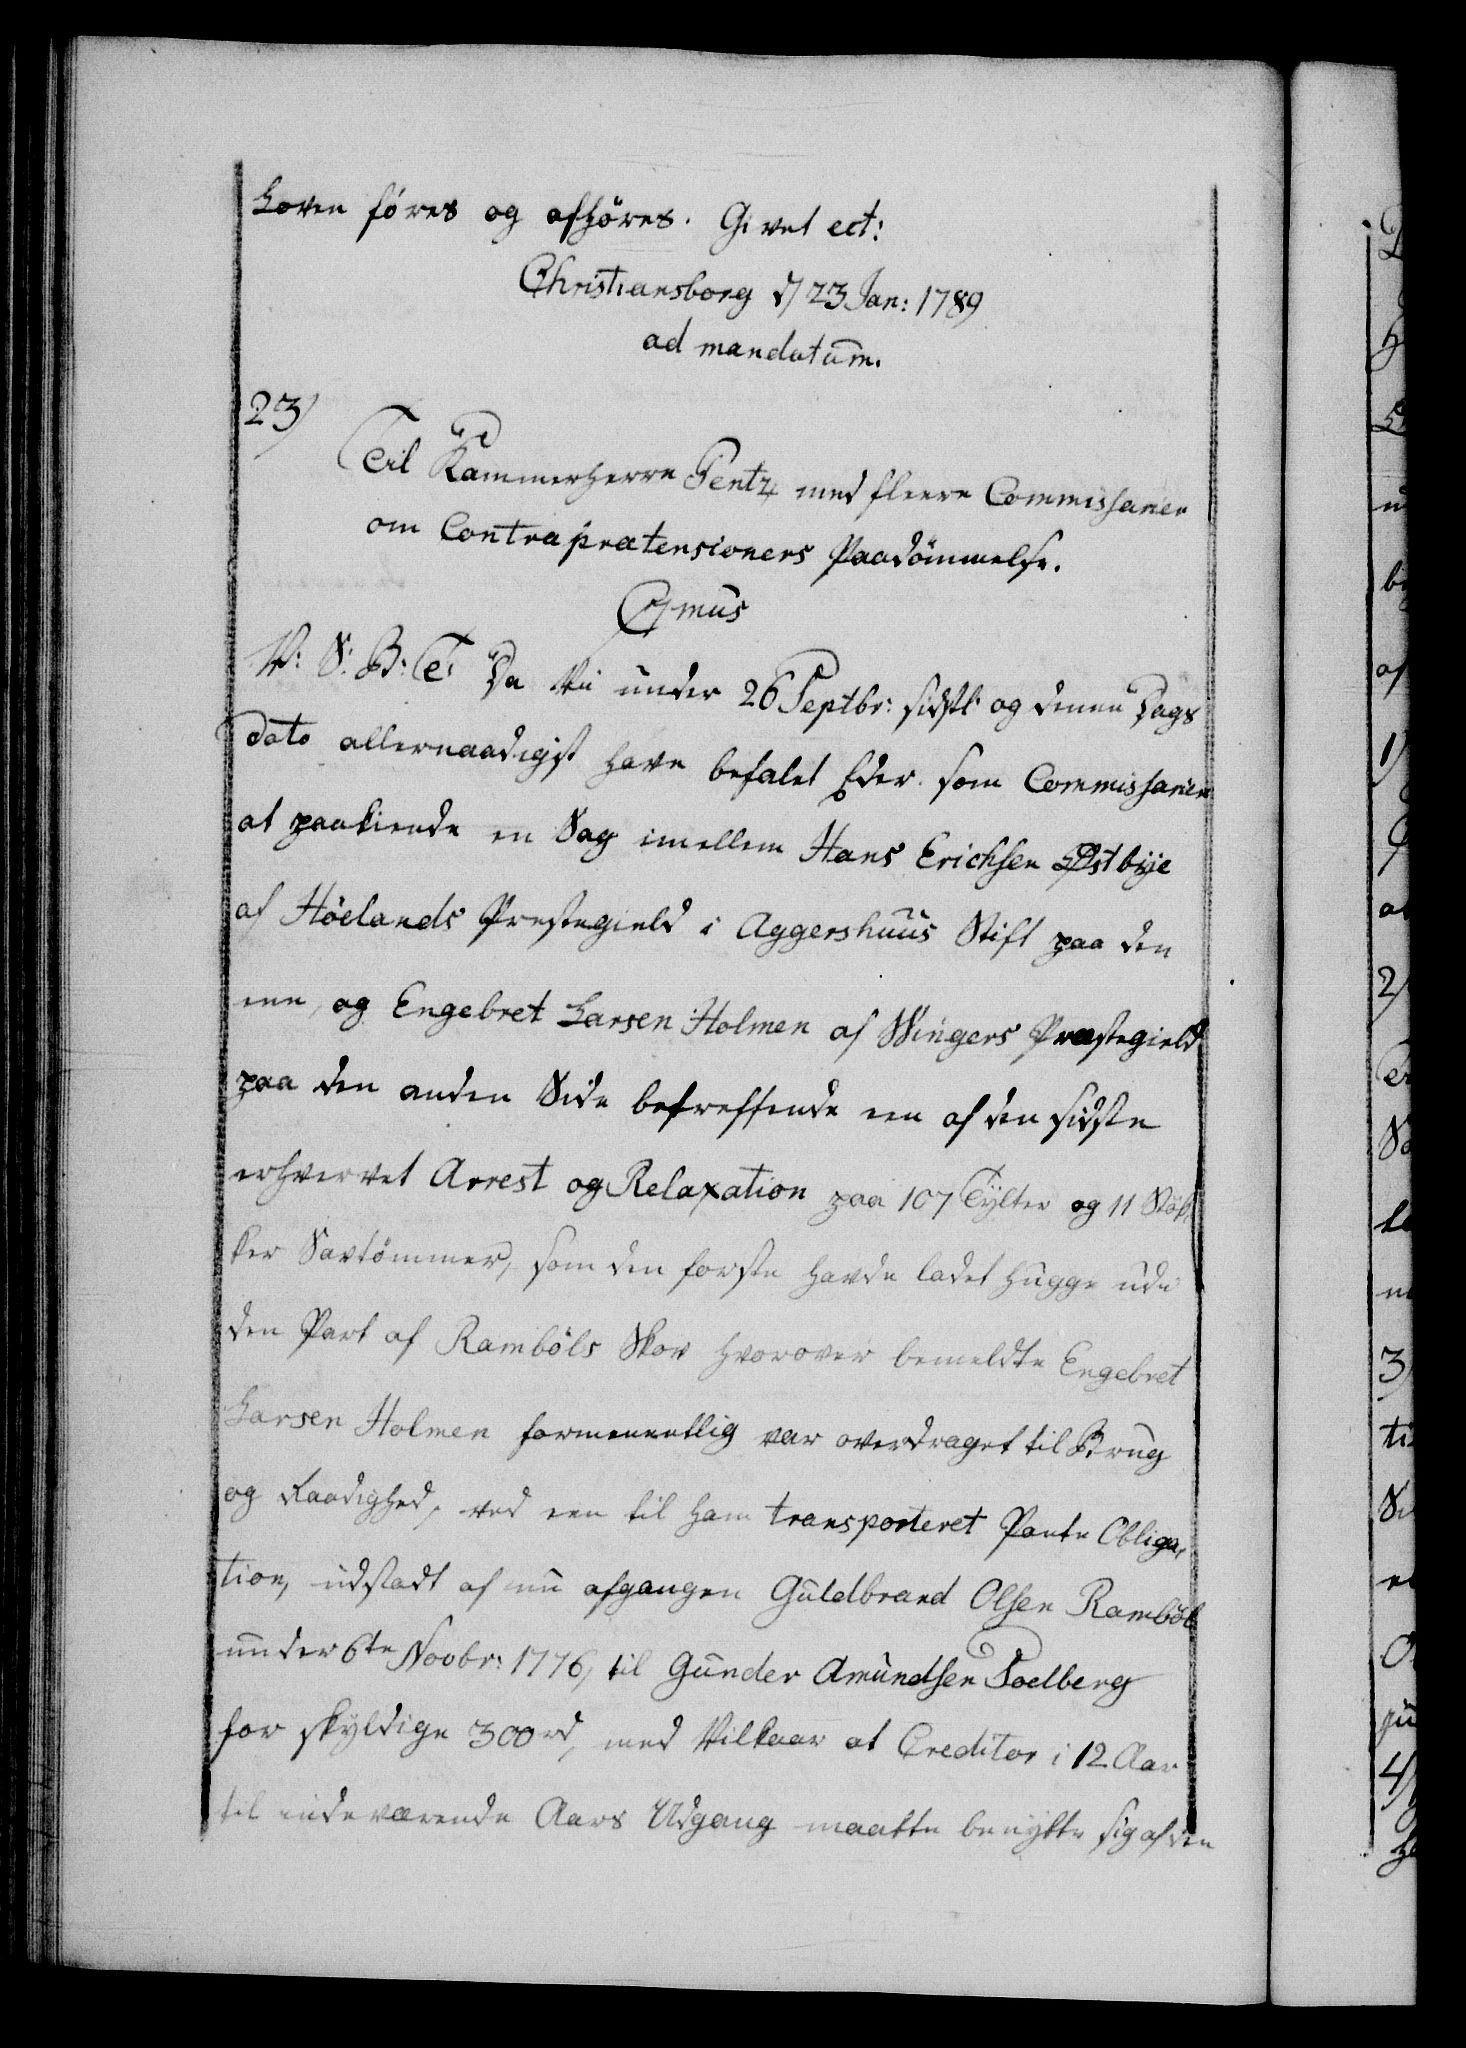 Loven föres og afhöres. Givet ect:
Christiansborg d/ 23 Jan: 1789
ad mandatum.
23)
Til Kammerherre Pentz med fleere Commissarier
om Contraprætensioners Paadömmelse.
C7mus
V: S: B: T: Da Vii under 26 Septbr: sidstl: og denne Dags
Dato allernaadigst have befalet Eder som Commissarier
at paakiende en Sag imellem Hans Erichsen Østbÿe
af Höelands Præstegield i Aggershuus Stift paa den
een, og Engebret Larsen Holmen af Wingers Præstegield
paa den anden Side betreffende een af den sidste
erhvervet Arrest og Relaxation paa 107 Tÿlter og 11 Stÿk-
ker Savtömmer, som den forste havde ladet hugge udi
den Part af Ramböls Skov hvorover bemeldte Engebret
Larsen Holmen formeentlig var overdraget til Brug
og Raadighed, ved een til ham transporteret Pante Obliga-
tion, udstædt af nu afgangen Guldbrand Olsen Ramböl
under 6te Novbr: 1776, til Gunder Amundsen Soelberg
for skÿldige 300rd, med Vilkaar at Creditor i 12 Aar
til indeværende Aars Udgang maatte benÿtte sig af den